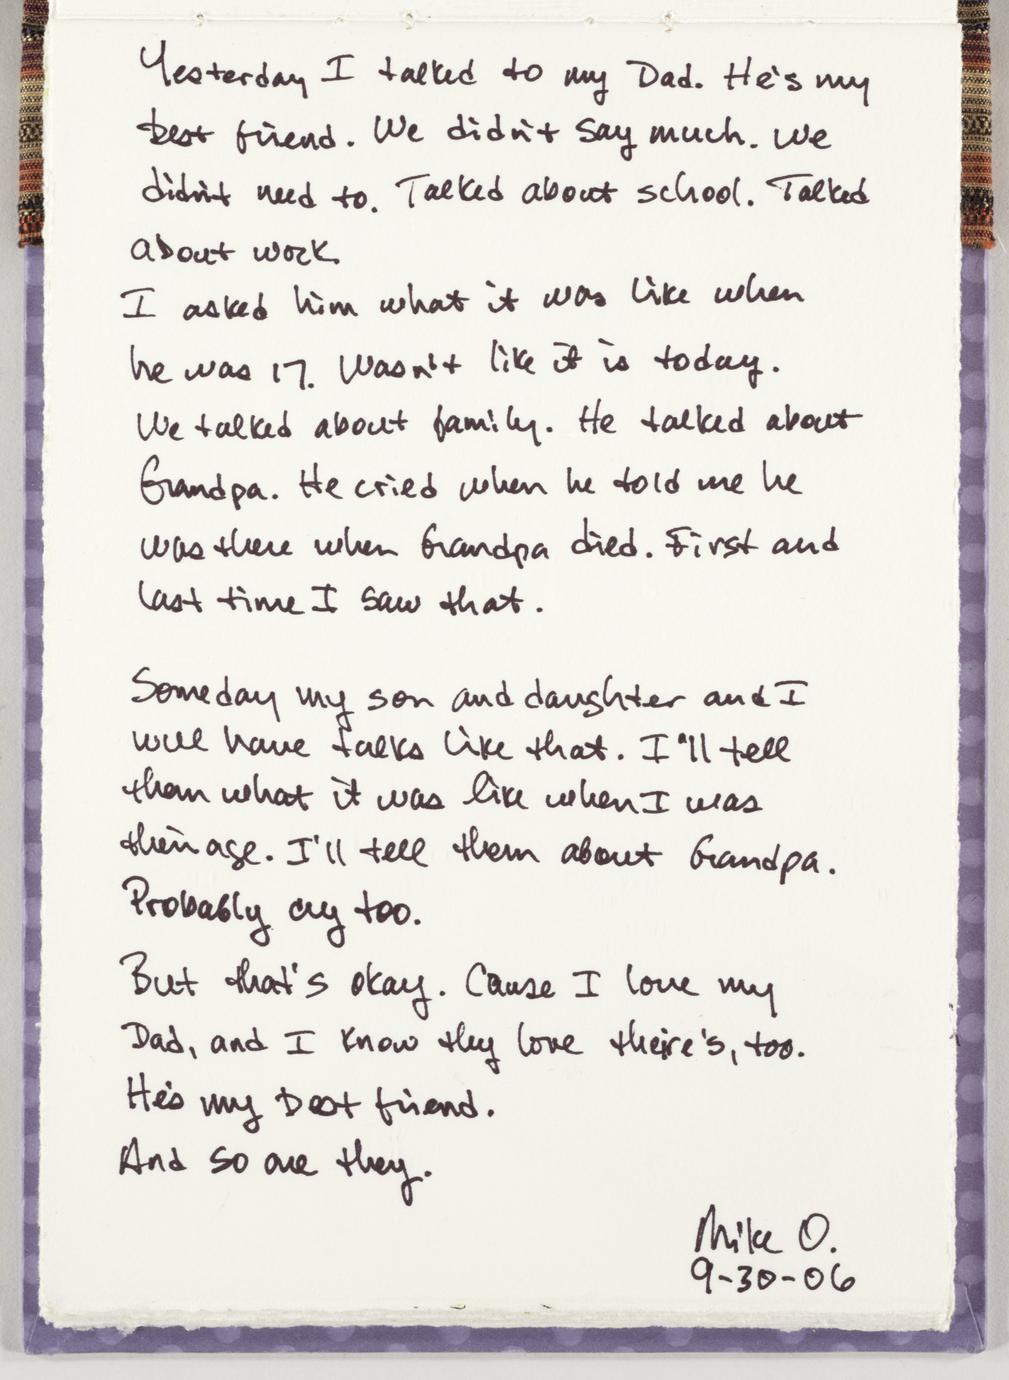 Yesterday I talked to my Dad. He's my
best friend. We didn't say much. We
didn't need to. Talked about school. Talked
about work.
I asked him what it was like when
he was 17. Wasn't like it is today.
We talked about family. He talked about
Grandpa. He cried when he told me he
was there when Grandpa died. First and
last time I saw that.
Someday my son and daughter and I
will have talks like that. I'll tell
them what it was like when I was
their age. I'll tell them about Grandpa.
Probably cry too.
But that's okay. Cause I love my
Dad, and I know they love theire's, too.
He's my best friend.
And so are they.
Mike O.
9-30-06